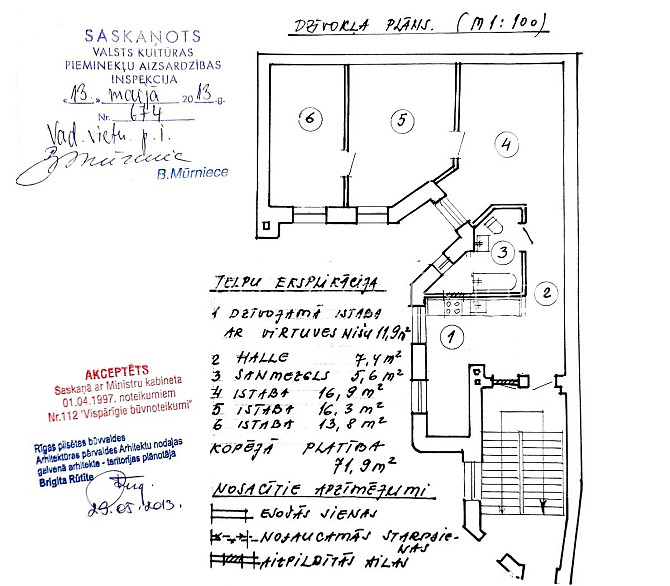 DZĪVOKĻA PLĀNS. (M 1:100)
SASKAŅOTS
VALSTS KULTŪRAS
PIEMINEKĻU AIZSARDZĪBAS
INSPEKCIJA
"13." maijā 2013.g.
Nr. 674
Vad. vietn. p.i.
B.Mūrniece
6
5
4
3
2
1
TELPU EKSPLIKĀCIJA
1 DZĪVOJAMĀ ISTABA
AR VIRTUVES NIŠU 11,9 m²
2 HALLE 7,4 m²
3 SANMEZGLS 5,6 m²
4 ISTABA 16,9 m²
5 ISTABA 16,3 m²
6 ISTABA 13,8 m²
KOPĒJĀ PLATĪBA
71,9 m²
NOSACĪTIE APZĪMĒJUMI
ESOŠĀS SIENAS
NOJAUCAMĀS STARPSIE-
NAS
AIZPILDĪTĀS AILAS
AKCEPTĒTS
Saskaņā ar Ministru kabineta
01.04.1997. noteikumiem
Nr.112 "Vispārīgie būvnoteikumi"
Rīgas pilsētas būvvaldes
Arhitektūras pārvaldes Arhitektu nodaļas
galvenā arhitekte - teritorijas plānotāja
Brigita Rūtiņa
29.05.2013.